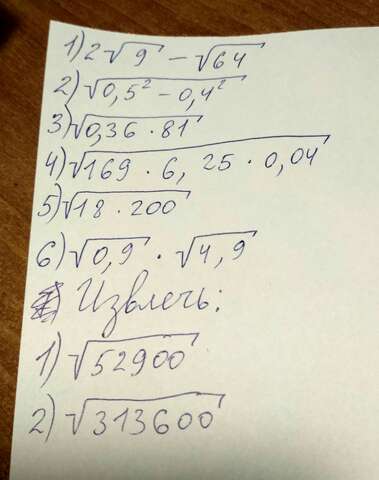 1) 2√9 - √64
2) √0,5² - 0,4²
3) √0,36 · 81
4) √169 · 6,25 · 0,04
5) √18 · 200
6) √0,9 · √4,9
Извлечь:
1) √52900
2) √313600